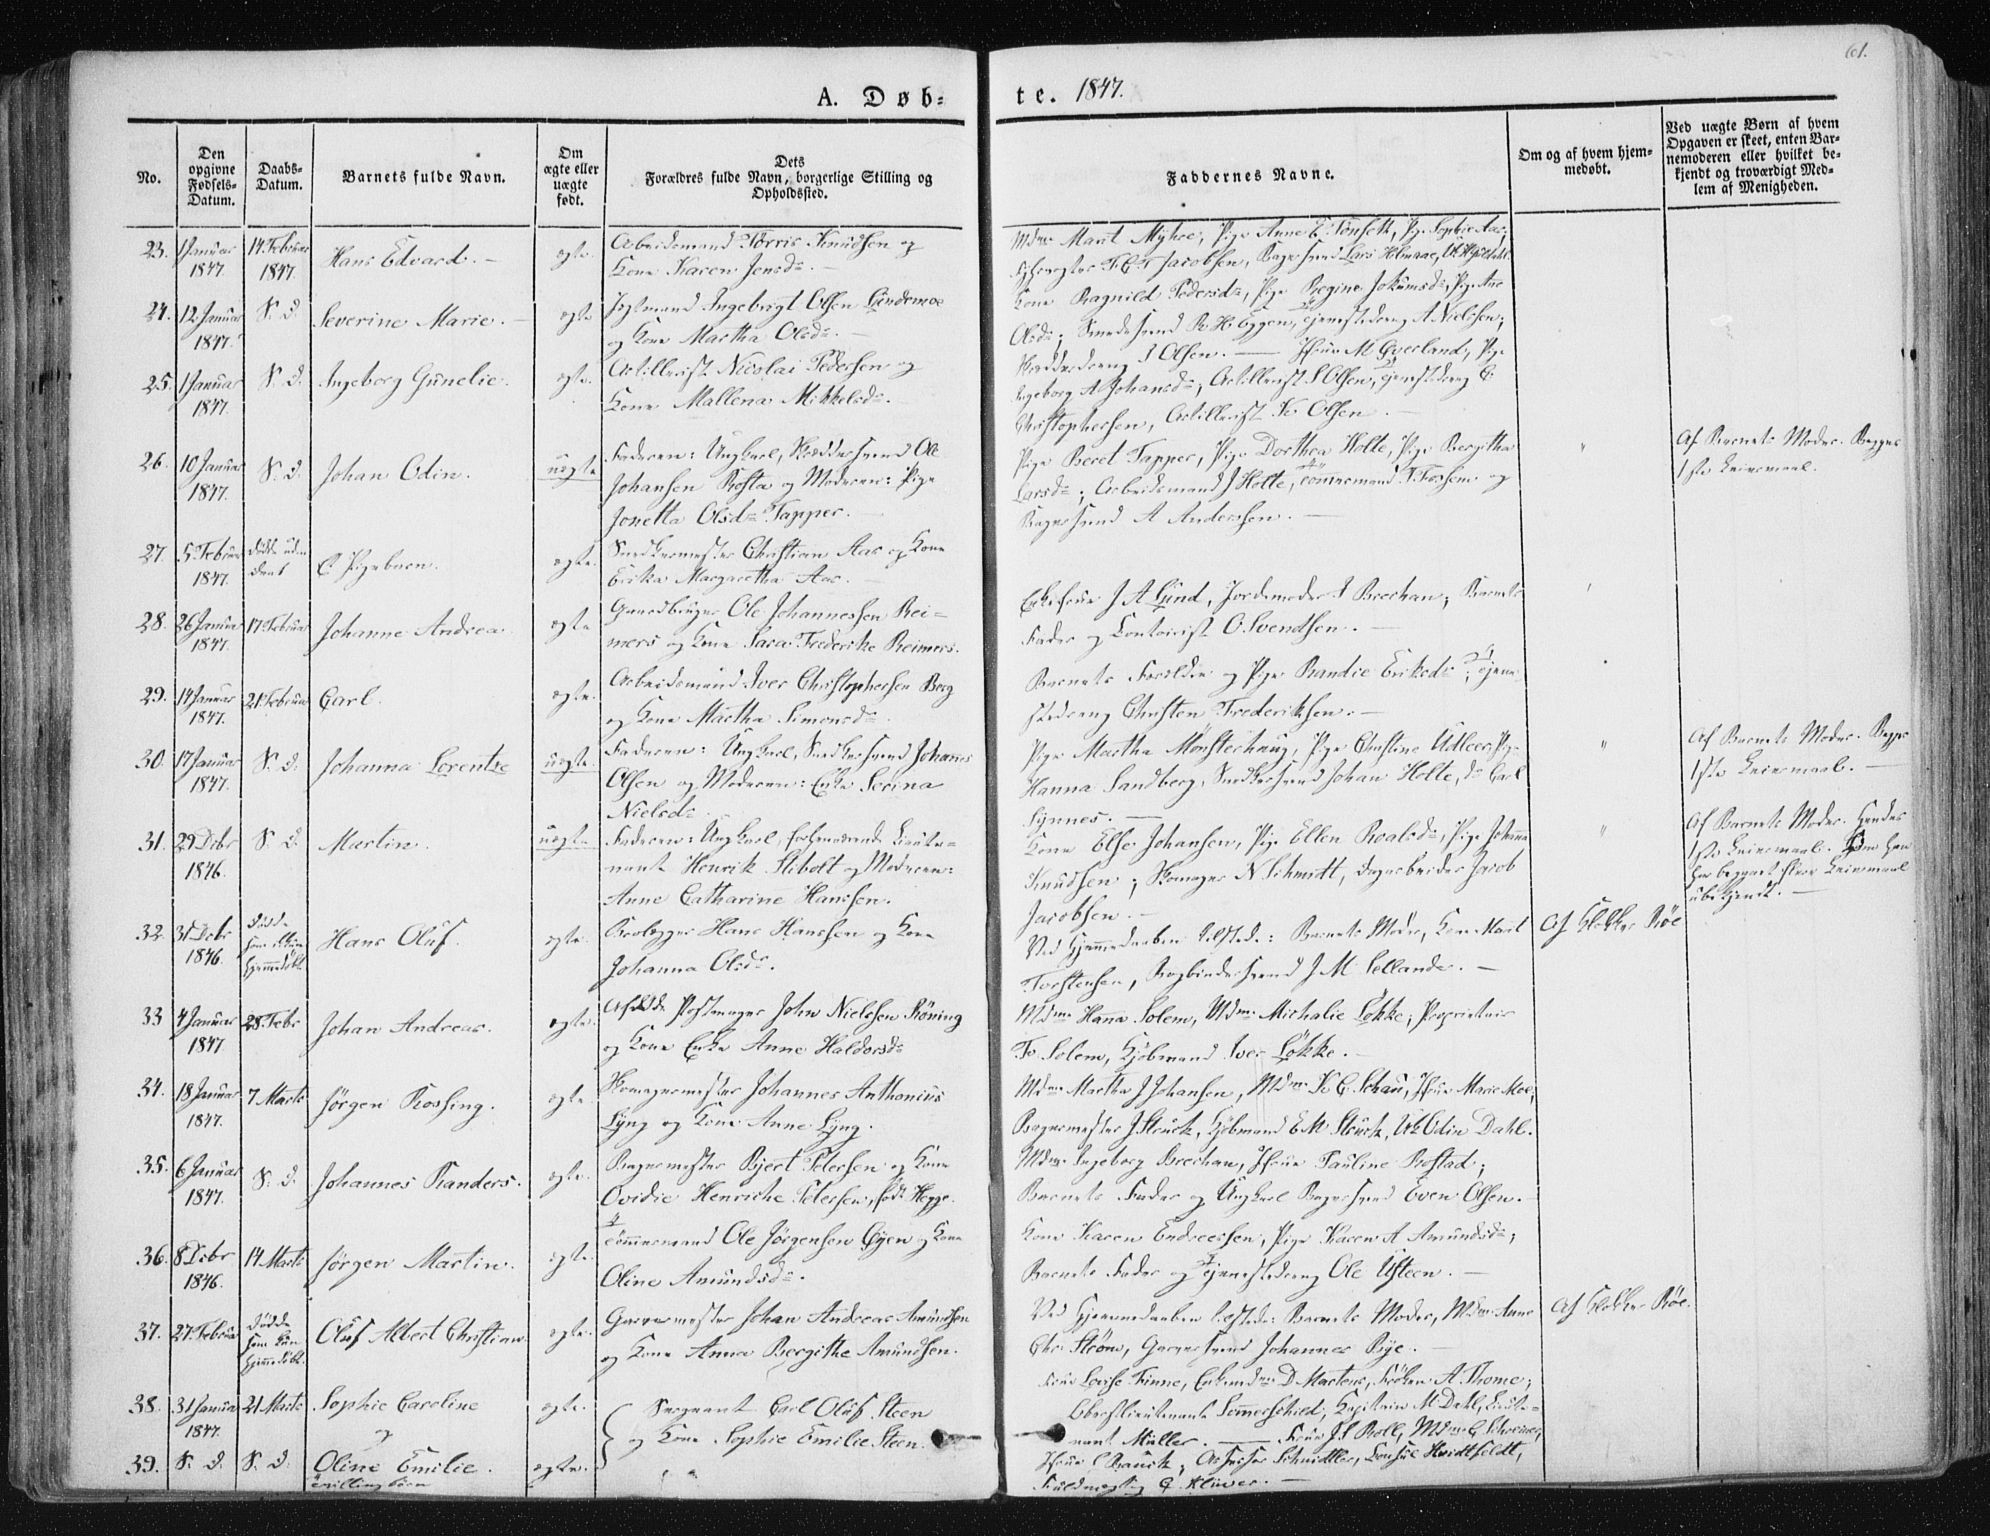 61.
A. Døb-
te. 1847.
No.
Den opgivne Fødsels-Datum.
Daabs-Datum.
Barnets fulde Navn.
Om ægte eller uægte født.
Dets Forældres fulde Navn, borgerlige Stilling og Opholdssted.
Faddernes Navne.
Om og af hvem hjem-medøbt.
Ved uægte Børn af hvem Opgaven er skeet, enten Bar-nemoderen eller hvilket be-kjendt og troværdigt Med-lem af Menigheden.
23. 1 Januar 1847. 14. Februar 1847. Hans Edvard. ægte. Arbeidsmand Tørris Knudsen og
Kone Karen Jensd.
Mdm Marit Myhre, Pige Anne E. Tønseth, Pg. Sophie Aas,
Jacobsen, Bagersvend Lars Holmaae,
24. 12 Januar 1847. S. D. Severine Marie. ægte Ingebrigt Olsen Lindemoe
og Kone Martha Olsd.
Kone Ragnild Pedersd, Pige Regine Jokumsd, Pige Ane
Olsd; Smedesvend R. H. Eggen, Tjenestedreng A Nielssen;
J Olsen.
25. 1 Januar 1847. S. D. Ingeborg Gunelie. ægte. Artillerist Nicolai Pedersen og
Kone Mallena Mikkelsd.
Jfrue M Øverland, Pige
Ingeborg A Johansd; Artillerist S Olsen, Tjenestedreng C
Christophersen, Artillerist K Olsen.
26. 10 Januar 1847. S. D. Johan Odin. uægte Faderen: Ungkarl, Skreddersvend Ole
Johansen Rosta og Moderen: Pige
Jonetta Olsd Tapper.
Pige Beret Tapper, Pige Dorthea Holte, Pige Bergitha
Larsd; Arbeidsmand J Holte, Tømmermand T Fossem og
Bagersvend A Anderssen.
Af Barnets Moder. Begges
1ste Leiermaal.
27. 5. Februar 1847. Død uden Daab Et Pigebarn. ægte. Snedkermester Christian Aas og Kone
Erika Margaretha Aas.
28. 26 Januar 1847. 17. Februar Johanne Andrea ægte Gaardbruger Ole Johannessen Rei-
mers og Kone Sara Frederike Reimers.
Enkefrue J A Lund, Jordemoder J Brechan; Barnets
Fader og Contoirist O. Svendsen.
29. 14 Januar 1847. 21. Februar Carl. ægte. Arbeidsmand Iver Christophersen Berg
og Kone Martha Simonsd.
Barnets Forældre og Pige Randie Eriksd; Tjene-
stedreng Christen Frederiksen.
30. 17 Januar 1847. S. D. Johanna Lorentze uægte. Faderen: Ungkarl, Snedkersvend Johannes
Olsen og Moderen: Enke Serina
Nielsd.
Pige Martha Mønsterhaug, Pige Christine Udleer, Pg.
Hanna Sandberg, Snedkersvend Johan Holte, do Carl
Synnes.
Af Barnets Moder. Begges
1ste Leiermaal.
31. 29 Debr 1846. S. D. Martin. uægte Faderen: Ungkarl, forhenværende Lieute-
nant Henrik Stibolt og Moderen:
Anne Catharine Hanssen.
Kone Else Johansen, Pige Ellen Roalsd, Pige Johanna
Knudsen; Skomager N. Schmidt, Dagarbeider Jacob
Jacobsen.
Af Barnets Moder. Hendes
1ste Leiermaal. Om han
har begaaet flere Leiermaal
ubekjendt.
32. 31 Debr 1846. Hans Oluf. ægte. Hans Hanssen og Kone
Johanna Olsd.
Ved Hjemmedaaben tilstede: Barnets Moder, Kone Marit
Torstensen, Bogbindersvend J. M. Selland.
Af Klokker Røe
33 4 Januar 1847 28. Febr Johan Andreas. ægte. Afdøde John Nielsen Røning
og Kone Enke Anne Haldorsd
Mdm Hanna Solem, Mdm Michalie Løkke; Proprietair
T. Solem, Kjøbmand Iver Løkke.
34. 18 Januar 1847. 7 Marts Jørgen Rossing. ægte Skomagermester Johannes Anthonius
Lyng og Kone Anne Lyng.
Mdm Martha J Johansen, Mdm K. E. Schau, Jfrue Marie Moe;
Bagermester J. Struck, Kjøbmand E. M. Struck, Odin Dahl.
35. 6 Januar 1847. S. D. Johannes Randers. ægte. Bagermester Bjert Petersen og Kone
Ovidie Henriche Petersen, født Hegge.
Mdm Ingeborg Brechan, Jfrue Pauline Rostad;
Barnets Fader og Ungkarl Bagersvend Even Olsen.
36. 8 Debr 1846. 14 Marts Jørgen Martin. ægte. Tømmermand Ole Jørgensen Øyen og Kone
Oline Amundsd.
Kone Karen Endressen, Pige Karen A Amundsd;
Barnets Fader og Tjenestedreng Ole Usteen.
37. 27. Februar Døde som kun hjemmedøbt. Oluf Albert Christian ægte. Garvermester Johan Andreas Amundsen
og Kone Anna Bergithe Amundsen.
Ved Hjemmedaaben tilstede: Barnets Moder, Mdm Anne
Chr. Strøm, Garversvend Johannes Rye.
Af Klokker Røe.
38. 31 Januar 1847. 21 Marts Sophie Caroline
og
ægte. Sergeant Carl Oluf Steen
og Kone Sophie Emilie Steen.
Frue Lovise Finne, D Martens, Frøken A. Thome;
Oberstlieutenant Sommerschield, Kapitain M. Dahl, Lieute-
nant Müller.
39. S. D. S. D. Oline Emilie. ægte.
Tvillingbørn
Frue J. S. Roll, Mdm C Schreiner,
Jfrue C Bauck; Assessor Schnittler, Consul Huidtfeldt,
Fuldmægtig C. Klüwer.